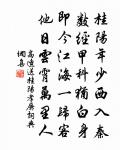 桂陽年少西入秦
數經甲科猶白身
即今江海一歸客
他日雲霄萬里人
高適送桂陽孝廉詞典
網